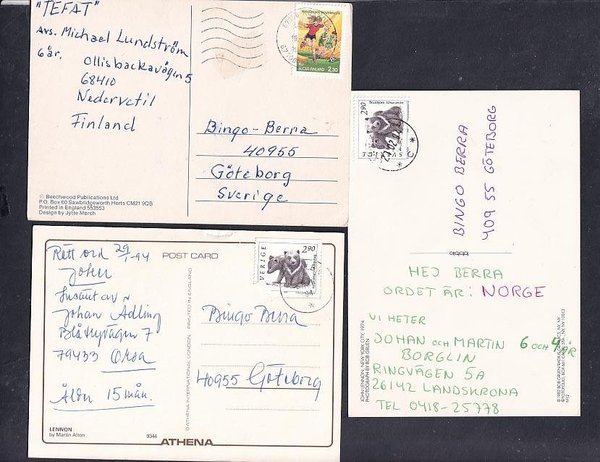 "TEFAT"
Avs. Michael Lundström
6 år.
Ollisbackavägen 5
68410
Nedervetil
Finland
SUOMI FINLAND 2,30
Bingo-Berra
40955
Göteborg
Sverige
© Beechwood Publications Ltd
P.O. Box 60 Sawbridgeworth Herts CM21 9QB
Printed in England
Design by Jytte Mørch
2.90
BINGO BERRA
409 55 GÖTEBORG
HEJ BERRA
ORDET ÄR: NORGE
VI HETER
JOHAN och MARTIN 6 och 4 ÅR
BORGLIN
RINGVÄGEN 5A
26142 LANDSKRONA
TEL 0418-25778
JOHN LENNON, NEW YORK CITY, 1974
PHOTOGRAPH BY BOB GRUEN
Rätt ord 29/1-94
Joker
Insänt av
Johan Adling
79433 Orsa
Ålder 15 mån.
POST CARD
SVERIGE 2.90
Bingo Berra
40955 Göteborg
© ATHENA INTERNATIONAL PRINTED IN ENGLAND
LENNON
by Martin Alton
9344
ATHENA